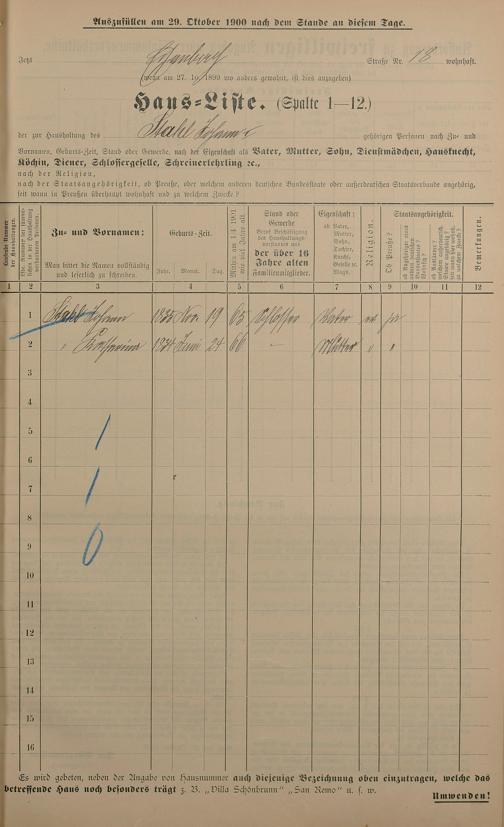 Auszufüllen am 29. Oktober 1900 nach dem Stande an diesem Tage.
Jetzt Straße Nr. 18 wohnhaft.
(wenn am 27. 10. 1899 wo anders gewohnt, ist dies anzugeben)
Haus-Liste. (Spalte 1—12.)
der zur Haushaltung des Stahl Johann gehörigen Personen nach Zu- und
Vornamen, Geburts-Zeit, Stand oder Gewerbe, nach der Eigenschaft als Vater, Mutter, Sohn, Dienstmädchen, Hausknecht,
Köchin, Diener, Schlossergeselle, Schreinerlehrling ꝛc.,
nach der Religion,
nach der Staatsangehörigkeit, ob Preuße, oder welchem anderen deutschen Bundesstaate oder außerdeutschen Staatsverbande angehörig,
seit wann in Preußen überhaupt wohnhaft und zu welchem Zwecke?
Zu- und Vornamen:
Man bittet die Namen vollständig und leserlich zu schreiben.
Geburts-Zeit.
Jahr. Monat. Tag.
Stand oder Gewerbe
der über 16 Jahre alten Familienmitglieder.
Eigenschaft:
ob Vater, Mutter, Sohn, Tochter, Knecht, Geselle o. Magd.
Religion.
Staatsangehörigkeit.
Ob Preuße?
Bemerkungen.
1 2 3 4 5 6 7 8 9 10 11 12
1 Stahl Johann 1835 Nov. 19 65 Schlosser Vater ev
2 " Katharina 1834 Juni 24 66 — Mutter " "
3
4
5
6
7
8
9
10
11
12
13
14
15
16
1
1
0
Es wird gebeten, neben der Angabe von Hausnummer auch diejenige Bezeichnung oben einzutragen, welche das
betreffende Haus noch besonders trägt z. B. „Villa Schönbrunn" „San Remo" u. s. w.
Umwenden!